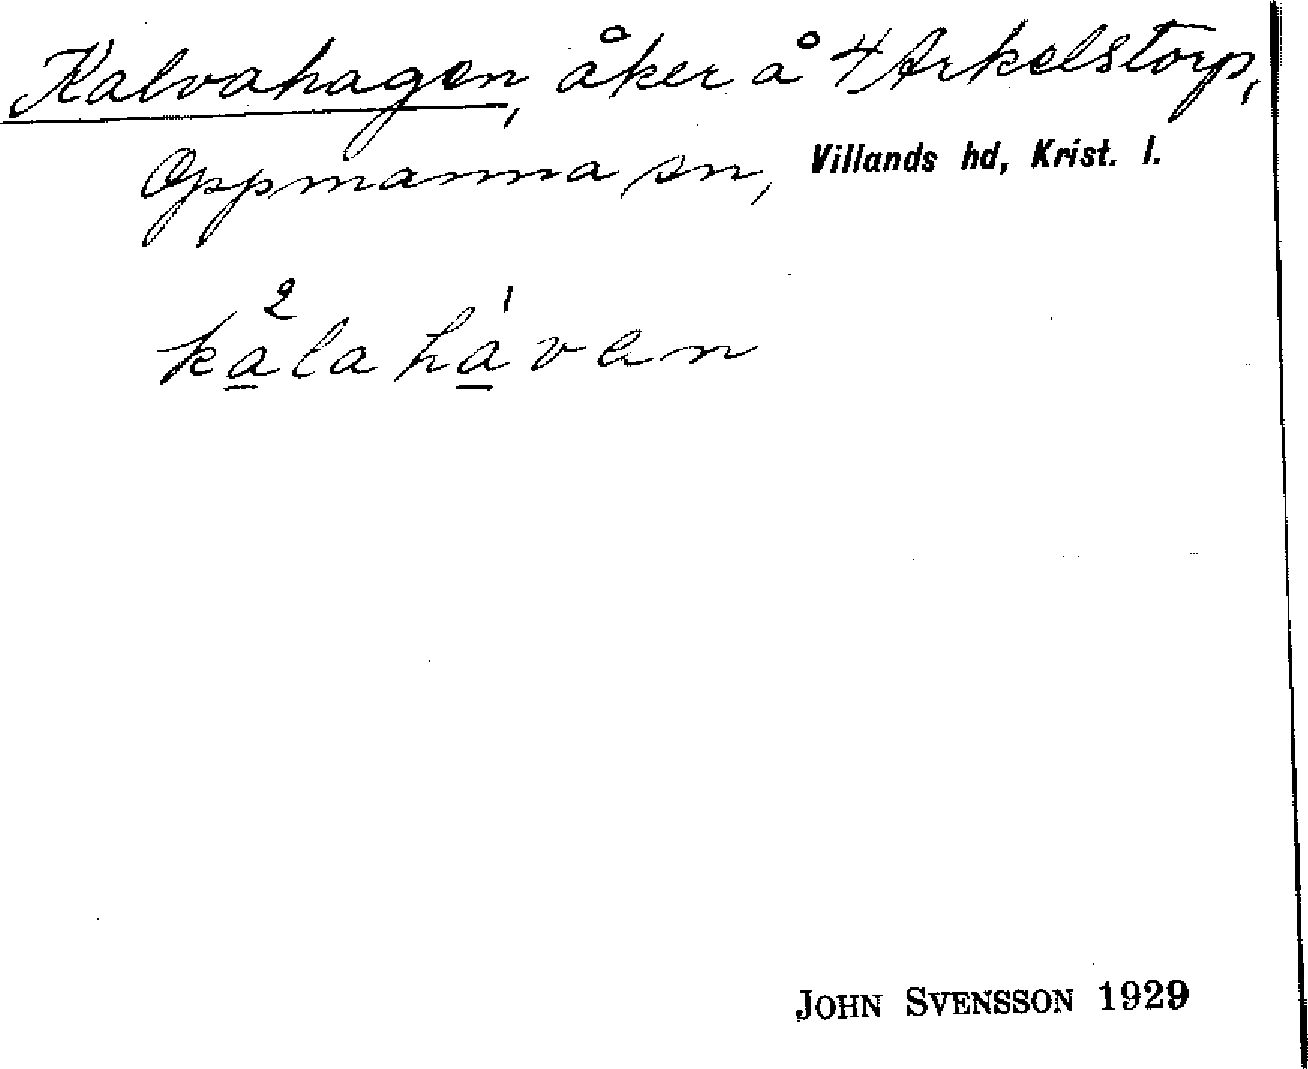 Kalvahagen, åker å 4 Arkelstorp,
Oppmanna sn, Villands hd, Krist. l.
ka²la ha¹ven
JOHN SVENSSON 1929